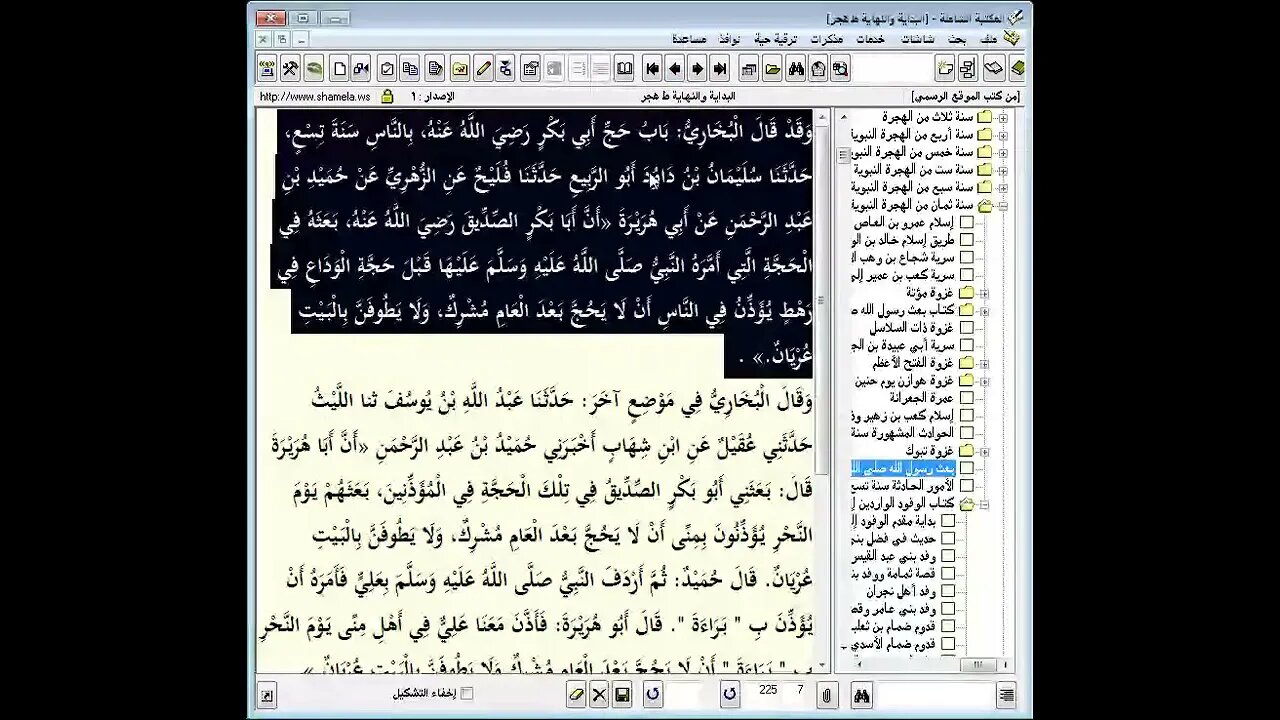 المكتبة الشاملة - [البداية والنهاية ط هجر]
ملف بحث شاشات خدمات مذكرات ترقية حية نوافذ مساعدة
[من كتب الموقع الرسمي] البداية والنهاية ط هجر الإصدار : ١ http://www.shamela.ws
وَقَدْ قَالَ الْبُخَارِيُّ: بَابُ حَجِّ أَبِي بَكْرٍ رَضِيَ اللَّهُ عَنْهُ، بِالنَّاسِ سَنَةَ تِسْعٍ،
حَدَّثَنَا سُلَيْمَانُ بْنُ دَاوُدَ أَبُو الرَّبِيعِ حَدَّثَنَا فُلَيْحٌ عَنِ الزُّهْرِيِّ عَنْ حُمَيْدِ بْنِ
عَبْدِ الرَّحْمَنِ عَنْ أَبِي هُرَيْرَةَ «أَنَّ أَبَا بَكْرٍ الصِّدِّيقَ رَضِيَ اللَّهُ عَنْهُ، بَعَثَهُ فِي
الْحَجَّةِ الَّتِي أَمَّرَهُ النَّبِيُّ صَلَّى اللَّهُ عَلَيْهِ وَسَلَّمَ عَلَيْهَا قَبْلَ حَجَّةِ الْوَدَاعِ فِي
رَهْطٍ يُؤَذِّنُ فِي النَّاسِ أَنْ لَا يَحُجَّ بَعْدَ الْعَامِ مُشْرِكٌ، وَلَا يَطُوفَنَّ بِالْبَيْتِ
عُرْيَانٌ.» .
وَقَالَ الْبُخَارِيُّ فِي مَوْضِعٍ آخَرَ: حَدَّثَنَا عَبْدُ اللَّهِ بْنُ يُوسُفَ ثنا اللَّيْثُ
حَدَّثَنِي عُقَيْلٌ عَنِ ابْنِ شِهَابٍ أَخْبَرَنِي حُمَيْدُ بْنُ عَبْدِ الرَّحْمَنِ «أَنَّ أَبَا هُرَيْرَةَ
قَالَ: بَعَثَنِي أَبُو بَكْرٍ الصِّدِّيقُ فِي تِلْكَ الْحَجَّةِ فِي الْمُؤَذِّنِينَ، بَعَثَهُمْ يَوْمَ
النَّحْرِ يُؤَذِّنُونَ بِمِنًى أَنْ لَا يَحُجَّ بَعْدَ الْعَامِ مُشْرِكٌ، وَلَا يَطُوفَنَّ بِالْبَيْتِ
عُرْيَانٌ. قَالَ حُمَيْدٌ: ثُمَّ أَرْدَفَ النَّبِيُّ صَلَّى اللَّهُ عَلَيْهِ وَسَلَّمَ بِعَلِيٍّ فَأَمَرَهُ أَنْ
يُؤَذِّنَ بِ " بَرَاءَةَ ". قَالَ أَبُو هُرَيْرَةَ: فَأَذَّنَ مَعَنَا عَلِيٌّ فِي أَهْلِ مِنًى يَوْمَ النَّحْرِ
بِ " بَرَاءَةَ " أَنْ لَا يَحُجَّ بَعْدَ الْعَامِ مُشْرِكٌ وَلَا يَطُوفَنَّ بِالْبَيْتِ عُرْيَانٌ »
سنة ثلاث من الهجرة
سنة أربع من الهجرة النبوية
سنة خمس من الهجرة النبوية
سنة ست من الهجرة النبوية
سنة سبع من الهجرة النبوية
سنة ثمان من الهجرة النبوية
إسلام عمرو بن العاص
طريق إسلام خالد بن
سرية شجاع بن وهب
سرية كعب بن عمير إلى
غزوة مؤتة
كتاب بعث رسول الله
غزوة ذات السلاسل
سرية أبي عبيدة بن
غزوة الفتح الأعظم
غزوة هوازن يوم حنين
عمرة الجعرانة
إسلام كعب بن زهير
الحوادث المشهورة سنة
غزوة تبوك
بعث رسول الله صلى
الأمور الحادثة سنة تسع
كتاب الوفود الواردين
بداية مقدم الوفود
حديث في فضل بني
وفد بني عبد القيس
قصة ثمامة ووفد
وفد أهل نجران
وفد بني عامر
قدوم ضمام بن
قدوم ضمام الأسدي
7 225 إخفاء التشكيل